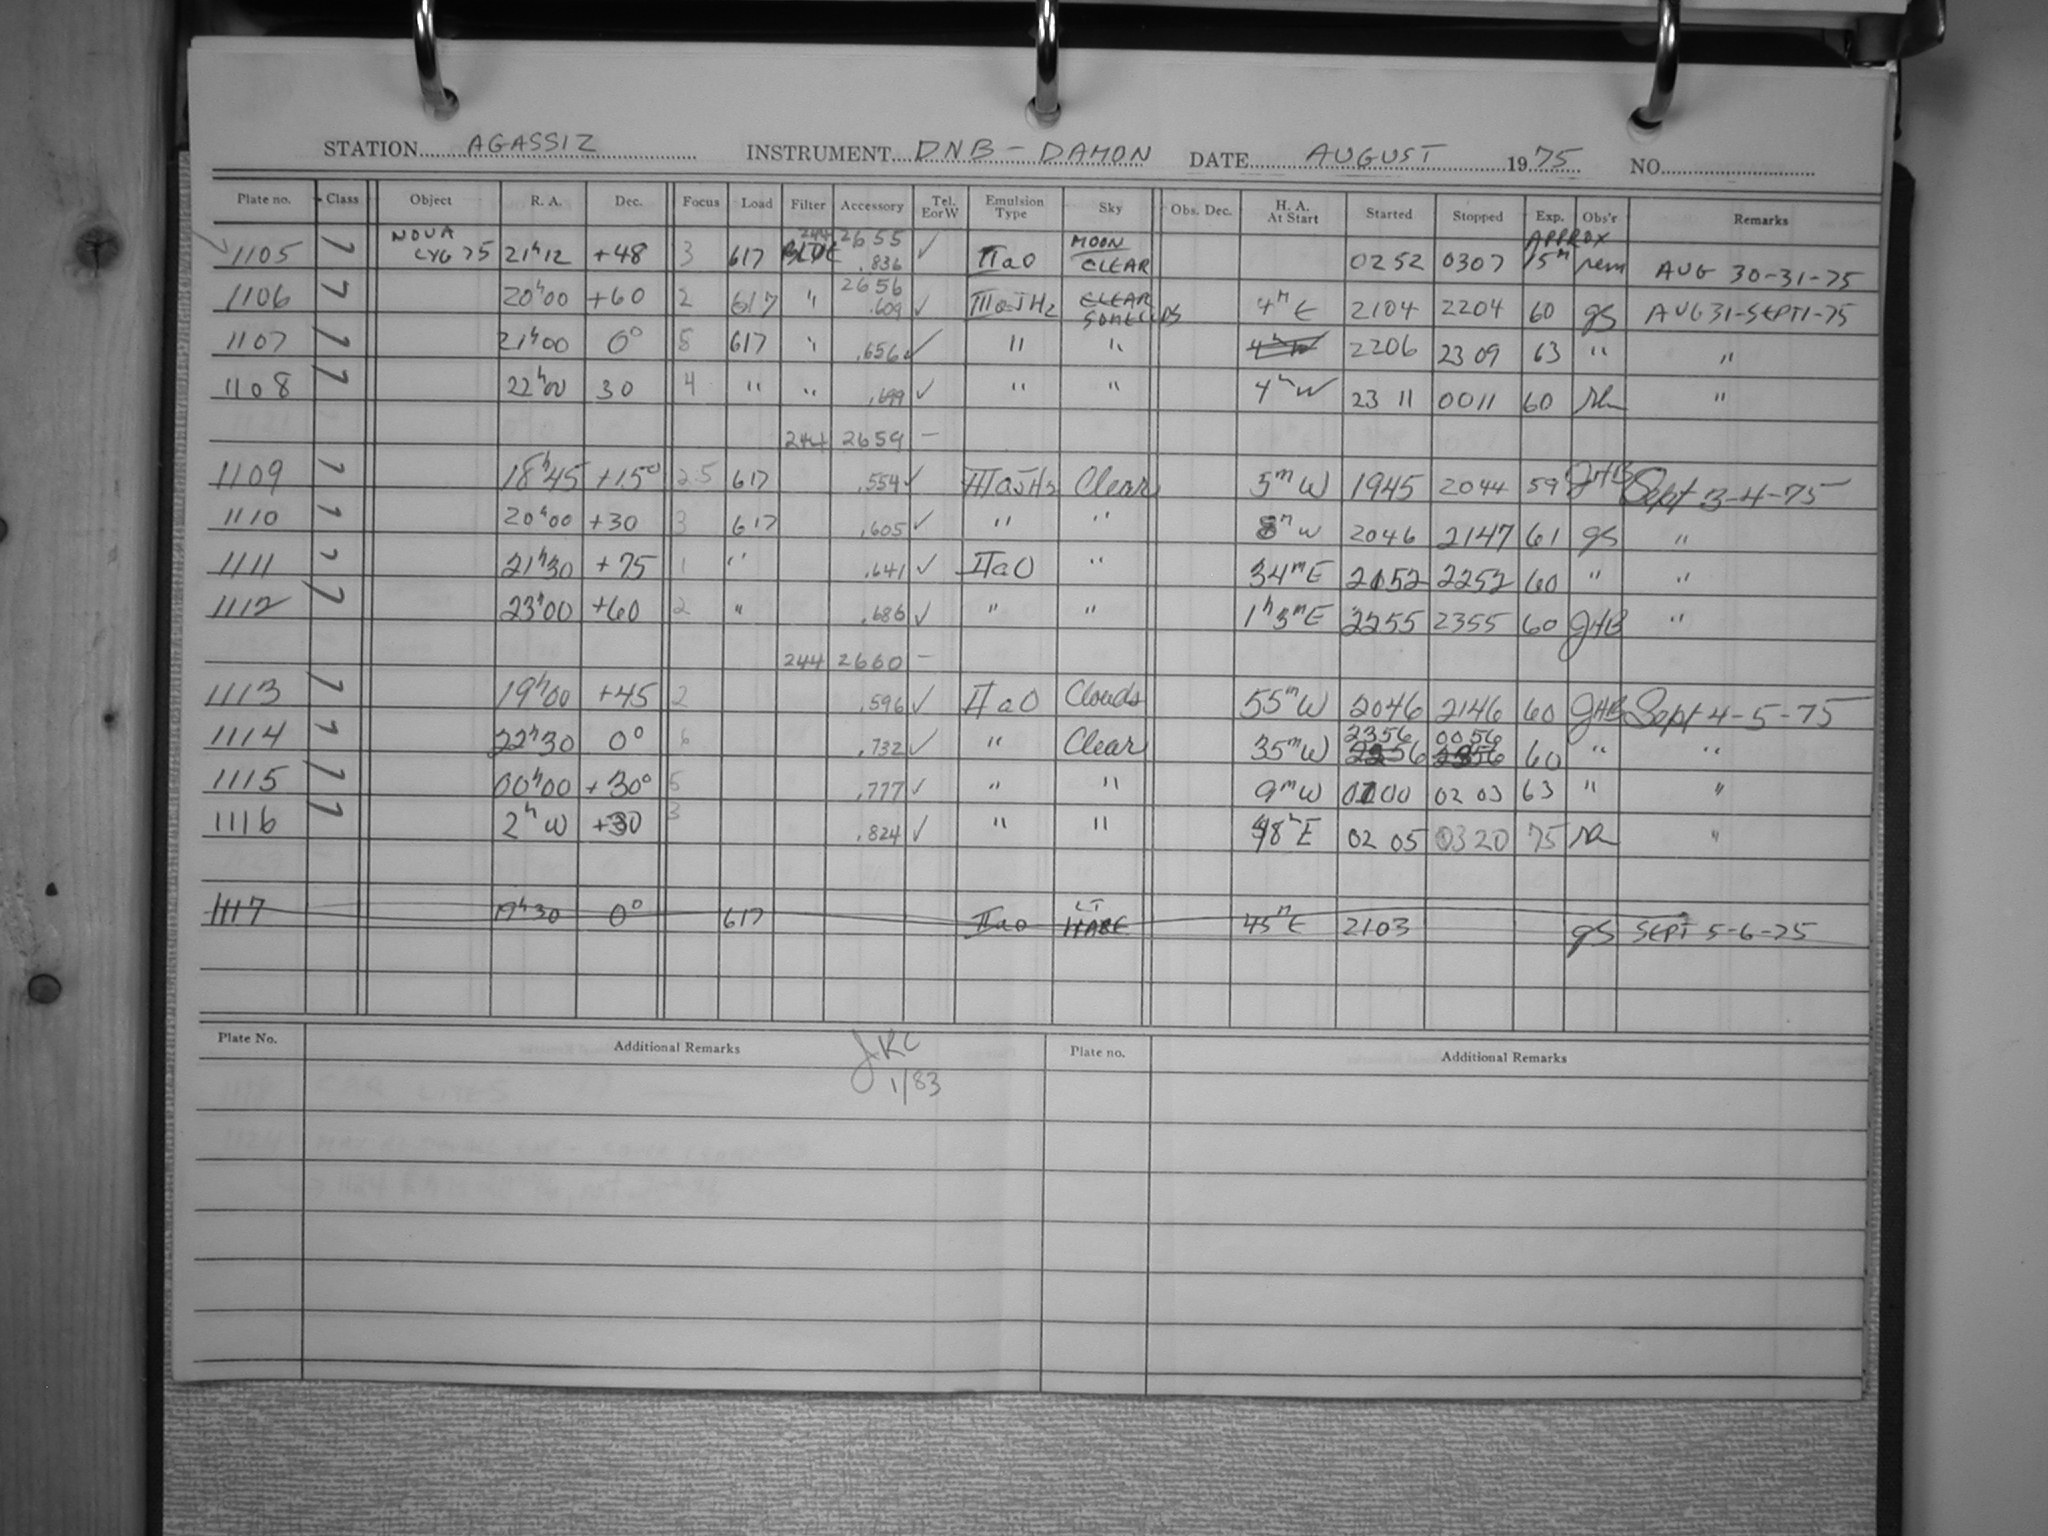 STATION AGASSIZ INSTRUMENT DNB - DAMON DATE AUGUST 1975 NO.
Plate no. Class Object R. A. Dec. Focus Load Filter Accessory Tel. E or W Emulsion Type Sky Obs. Dec. H. A. At Start Started Stopped Exp. Obs'r Remarks
1105 7 NOVA CYG 75 21h12 +48 3 617 244 BLUE 2655 .836 ✓ IIaO MOON CLEAR 0252 0307 APPROX 15m rem AUG 30-31-75
1106 7 20h00 +60 2 617 " 2656 .609 ✓ IIIaJH2 CLEAR SOME CLDS 4m E 2104 2204 60 gs AUG 31-SEPT 1-75
1107 7 21h00 0° 5 617 " .656 ✓ " " 2206 2309 63 " "
1108 7 22h00 30 4 " " .699 ✓ " " 4m W 2311 0011 60 "
244 2659 —
1109 7 18h45 +15° 2.5 617 .554 ✓ IIIaJH2 Clear 5m W 1945 2044 59 JHB Sept 3-4-75
1110 7 20h00 +30 3 617 .605 ✓ " " 8m W 2046 2147 61 gs "
1111 7 21h30 +75 1 " .641 ✓ IIaO " 34m E 2152 2252 60 " "
1112 7 23h00 +60 2 " .686 ✓ " " 1h 3m E 2255 2355 60 JHB "
244 2660 —
1113 7 19h00 +45 2 .596 ✓ IIaO Clouds 55m W 2046 2146 60 JHB Sept 4-5-75
1114 7 22h30 0° 6 .732 ✓ " Clear 35m W 2356 2256 0056 2356 60 " "
1115 7 00h00 +30° 5 .777 ✓ " " 9m W 0100 0203 63 " "
1116 7 2h W +30 3 .824 ✓ " " 48m E 0205 0320 75 "
1117 19h30 0° 617 IIaO LT HAZE 45m E 2103 gs SEPT 5-6-75
Plate No. Additional Remarks JRC Plate no. Additional Remarks
1/83